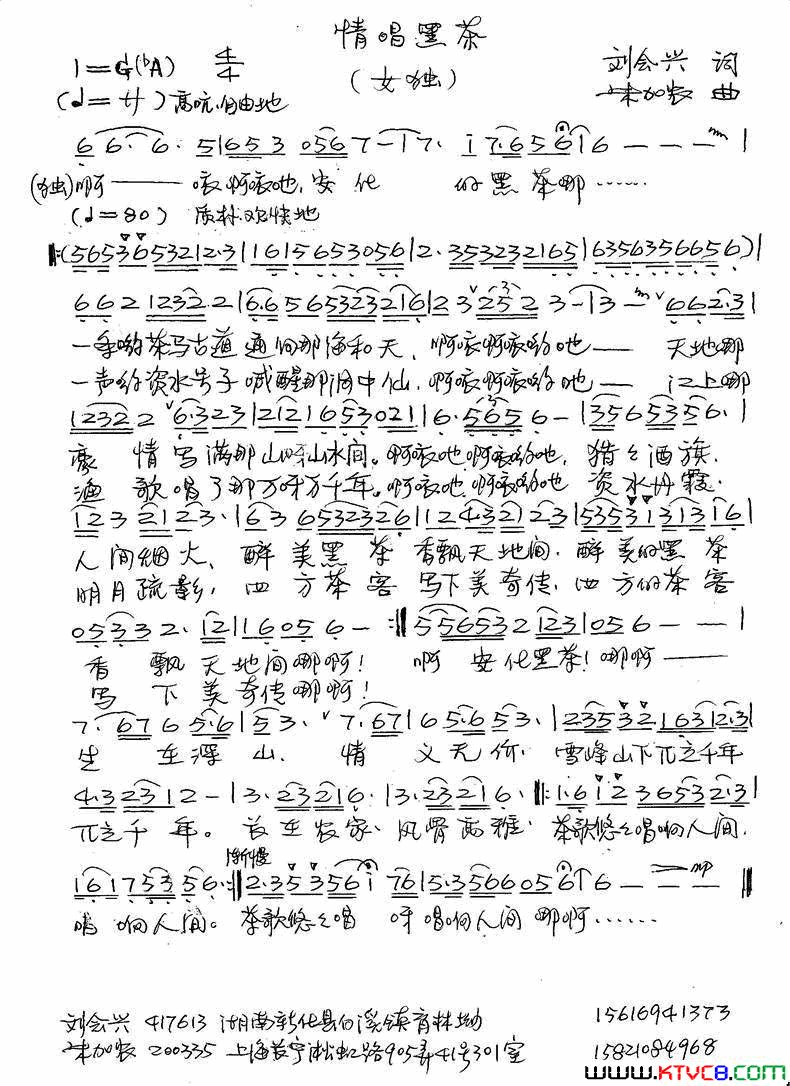 情唱黑茶
1=G(♭A) 4/4
(女独)
刘会兴 词
加农 曲
(♩=サ) 高吭.自由地
6 6· 6· 5|653 056 7-|7· i 7·6 5 6|6 - - -|
(独)啊—— 咳啊咳吔,安化 的黑茶哪……
(♩=80) 质朴.欢快地
‖:(565365321 2·3|161565305 6|2·353232165|63563566 56)|
662 1232·2|6·6 565323216|23 2523-|3- 662·3|
一条哟茶马古道通向那海和天,啊咳啊咳哟吔—— 天地那
一声哟资水号子喊醒那洞中仙,啊咳啊咳哟吔—— 江上哪
12322 6·323|2121653021|6·5656-|3565356·|
豪情写满那山呀山水间。啊咳吔啊咳哟吔,猎々酒旗.
渔歌唱了那万呀万千年。啊咳吔啊咳哟吔 资水丹霞.
123 2123·|63 6532326|124·32123|5353131316|
人间烟火、醉美黑茶 香飘天地间.醉美的黑茶
明月疏影,四方茶客 写下美奇传.四方的茶客
05332·12|16056-:‖556532123|056--|
香飘天地间哪啊! 啊安化黑茶!哪啊——
写下美奇传哪啊!
7·6765·6|53·7·67|65·653·|2353216312·3|
生在深山.情义无价.雪峰山下兀立千年
4·32312-|3·23216·|3·23216·‖:1·612365323·|
兀立千年。长在农家、风骨两雅.茶歌悠々唱响人间.
渐慢
16175356·:‖2·353561 76|5·3566056|6---‖
唱响人间。茶歌悠々唱 呀唱响人间哪啊……
刘会兴 417613 湖南新化县白溪镇育林坳 15616941373
加农 200335 上海长宁淞虹路905弄41号301室 15821084968
WWW.KTVC8.COM